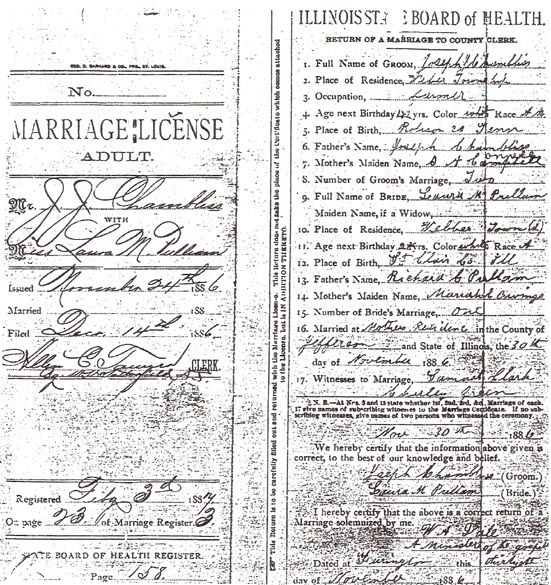 GEO. D. BARNARD & CO., PRS., ST. LOUIS.
No.
MARRIAGE LICENSE
ADULT.
Mr. J J Chambliss
WITH
Miss Laura M. Pulliam
Issued November 24th 1886.
Married 188
Filed Dec. 14th 1886.
CLERK.
Registered Feby 3d 1887
On page 23 of Marriage Register 3
STATE BOARD OF HEALTH REGISTER.
Page 158.
This Return is to be carefully filled out and returned with the Marriage License. This Return does not take the place of the Certificate which comes attached
to the License, but is IN ADDITION THERETO.
ILLINOIS ST BOARD of HEALTH.
RETURN OF A MARRIAGE TO COUNTY CLERK.
1. Full Name of GROOM, Joseph J Chambliss
2. Place of Residence, Webber Township
3. Occupation, Farmer
4. Age next Birthday yrs. Color white Race
5. Place of Birth, Co Tenn
6. Father's Name, Joseph Chambliss
7. Mother's Maiden Name, Campbell
8. Number of Groom's Marriage, Two
9. Full Name of BRIDE, Laura M Pulliam
Maiden Name, if a Widow,
10. Place of Residence, Webber Town
11. Age next Birthday yrs. Color white Race A
12. Place of Birth, St Clair Co Ill
13. Father's Name, Richard C Pulliam
14. Mother's Maiden Name, Mariah Owings
15. Number of Bride's Marriage, one
16. Married at Mothers Residence in the County of
Jefferson and State of Illinois, the 30th
day of November 1886.
17. Witnesses to Marriage, Clark
N. B.—At Nos. 8 and 15 state whether 1st, 2nd, 3rd, &c., Marriage of each.
17 give names of subscribing witnesses to the Marriage Certificate. If no sub-
scribing witnesses, give names of two persons who witnessed the ceremony.
Nov 30th 1886
We hereby certify that the information above given is
correct, to the best of our knowledge and belief.
Joseph Chambliss (Groom.)
Laura M Pulliam (Bride.)
I hereby certify that the above is a correct return of a
Marriage solemnized by me.
W A
A minister of the gospel
Dated at Farrington this thirtieth
day of November 1886.